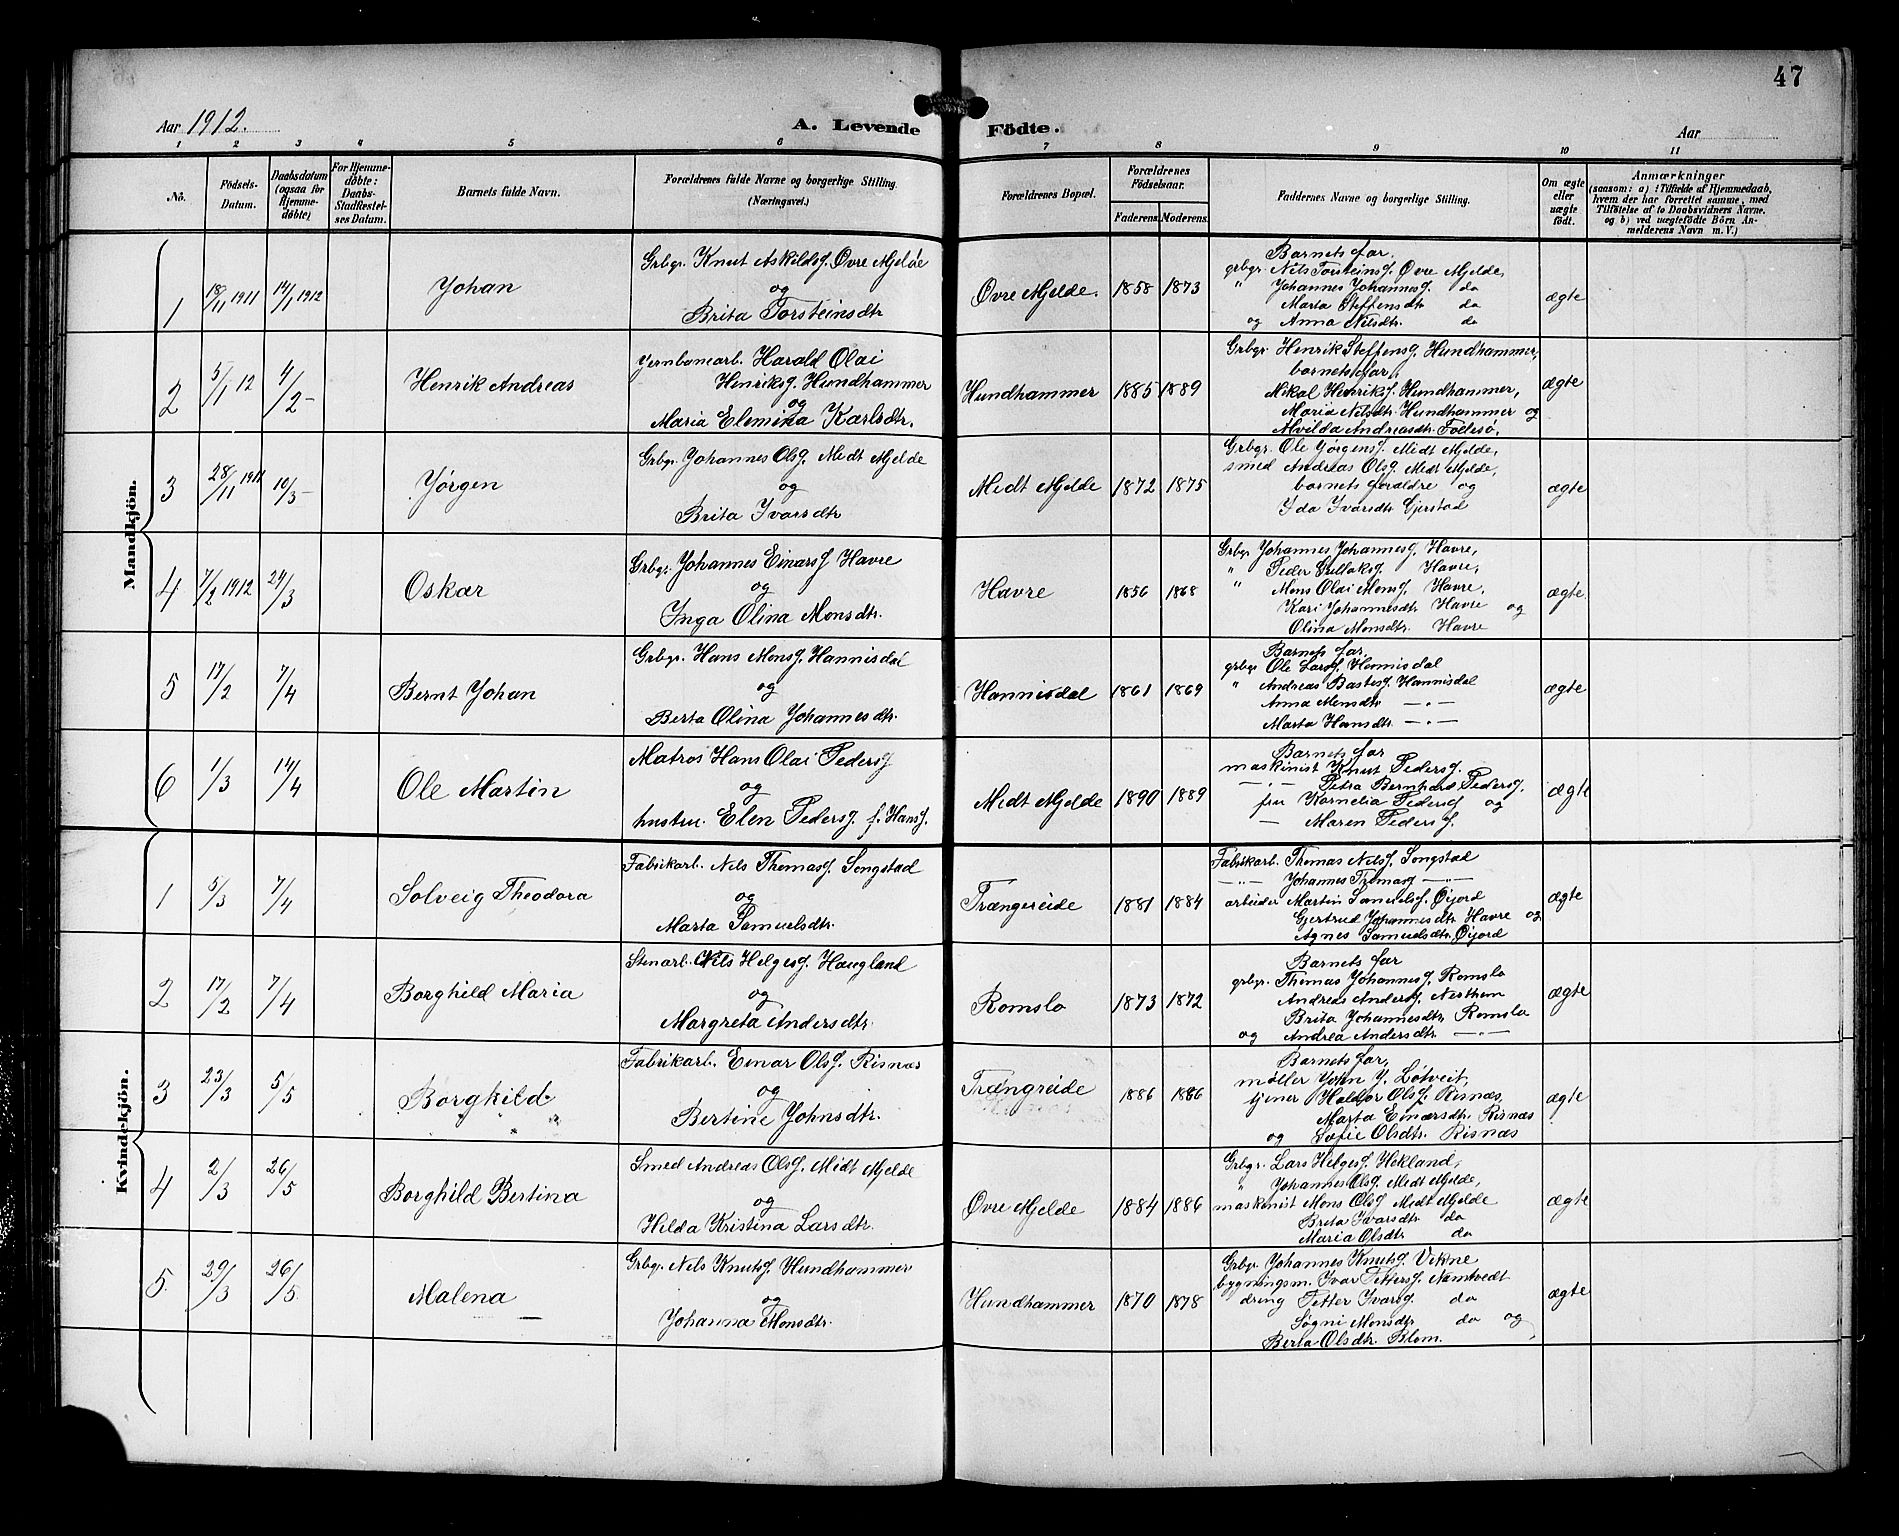 47
Aar 1912.
A. Levende Födte.
Aar
1 2 3 4 5 6 7 8 9 10 11
No.
Födsels-Datum.
Daabsdatum (ogsaa for Hjemme-døbte)
For Hjemme-døbte: Daabs-Stadfæstel-ses Datum.
Barnets fulde Navn.
Forældrenes fulde Navne og borgerlige Stilling. (Næringsvei.)
Forældrenes Bopæl.
Forældrenes Fødselsaar.
Faderens. Moderens.
Faddernes Navne og borgerlige Stilling.
Om ægte eller uægte født.
Anmærkninger
(saasom: a) i Tilfælde af Hjemmedaab, hvem der har forrettet samme, med Tilføielse af to Daabsvidners Navne, og b) ved uægtefødte Børn An-melderens Navn m. V.)
Mandkjön.
1 18/11 1911 14/1 1912 Johan
Grbgr. Knut Askildsf. Øvre Mjelde
og
Brita Torsteinsdtr
Øvre Mjelde. 1858 1873
Barnets far,
grbgr. Nils Torsteinsf. Øvre Mjelde,
" Johannes Johannesf. do
Marta Steffensdtr do
og Anna Nilsdtr. do
ægte
2 5/1 12 4/2 - Henrik Andreas
Jernbanearb. Harald Olai
Henriksf. Hundhammer
og
Maria Elemina Karlsdtr.
Hundhammer 1885 1889
Grbgr. Henrik Steffensf. Hundhammer,
barnets far,
Mikal Henriksf. Hundhammer,
Maria Nilsdtr. Hundhammer og
Alvilda Andreasdtr. Follesø.
ægte
3 28/11 1911 10/3 - Jørgen
Grbgr. Johannes Olsf. Midt Mjelde
og
Brita Ivarsdtr
Midt Mjelde 1872 1875
Grbgr. Ole Jørgensf. Midt Mjelde,
smed Andreas Olsf. Midt Mjelde,
barnets foraldre og
Ida Ivarsdtr Gjerstad
ægte
4 7/2 1912 24/3 Oskar
Grbgr. Johannes Einarsf Havre
og
Inga Olina Monsdtr.
Havre 1856 1868
Grbgr Johannes Johannesf, Havre,
" Peder Havre,
" Mons Olai Monsf, Havre,
Kari Johannesdtr Havre og
Olina Monsdtr. Havre
ægte
5 17/2 7/4 Bernt Johan
Grbgr. Hans Monsf. Hannisdal
og
Berta Olina Johannesdtr.
Hannisdal 1861 1869
Barnets far,
grbgr Ole Larsf. Hannisdal
" Andreas Bastesf. Hannisdal
Anna Monsdtr — " —
Marta Hansdtr. — " —
ægte
6 1/3 14/4 Ole Martin
Matros Hans Olai Pedersf
og
hustru. Elen Pedersf f. Hansf.
Midt Mjelde 1890 1889
Barnets far
maskinist Knut Pedersf.
— " — Petra Bernhard Pedersf.
fru Kornelia Pedersf og
— Maren Pedersf.
ægte
Kvindekjön.
1 5/3 7/4 Solveig Theodora
Fabrikarb. Nils Thomasf. Songstad
og
Marta Samuelsdtr.
Trængereide 1881 1884
Fabrikarb. Thomas Nilsf. Songstad
— " — Johannes Tomasf — " —
arbeider Martin Samuelsf. Øijord
Gjertrud Johannesdtr Havre og
Agnes Samuelsdtr. Øijord
ægte
2 17/2 7/4 Borghild Maria
Stenarb. Nils Helgesf. Haugland
og
Margreta Andersdtr.
Romslo 1873 1872
Barnets far
grbgr. Thomas Johannesf. Romslo
Andreas Andersf. Nerthun
Brita Johannesdtr Romslo
og Andrea Andersdtr — " —
ægte
3 23/3 5/5 Borghild
Fabrikarb. Einar Olsf. Risnæs
og
Bertine Johnsdtr.
Trængreide 1886 1886
Barnets far,
møller John J. Løtveit,
tjener Haldor Olsf. Risnæs,
Marta Einarsdtr. Risnæs
og Sofie Olsdtr. Risnæs
ægte
4 2/3 26/5 Borghild Bertina
Smed Andreas Olsf. Midt Mjelde
og
Hilda Kristina Larsdtr.
Øvre Mjelde 1884 1886
Grbgr. Lars Helgesf. Hekland,
" Johannes Olsf. Midt Mjelde,
maskinist Mons Olsf Midt Mjelde
Brita Ivarsdtr do
Maria Olsdtr do
ægte
5 29/3 26/5 Malena
Grbgr. Nils Knutsf. Hundhammer
og
Johanna Monsdtr.
Hundhammer 1870 1878
Grbgr. Johannes Knutsf. Vikne
bygningsm. Ivar Pettersf. Namtvedt
dreng Petter Ivarsf. do
Søgni Monsdtr. do og
Berta Olsdtr. Blom.
ægte